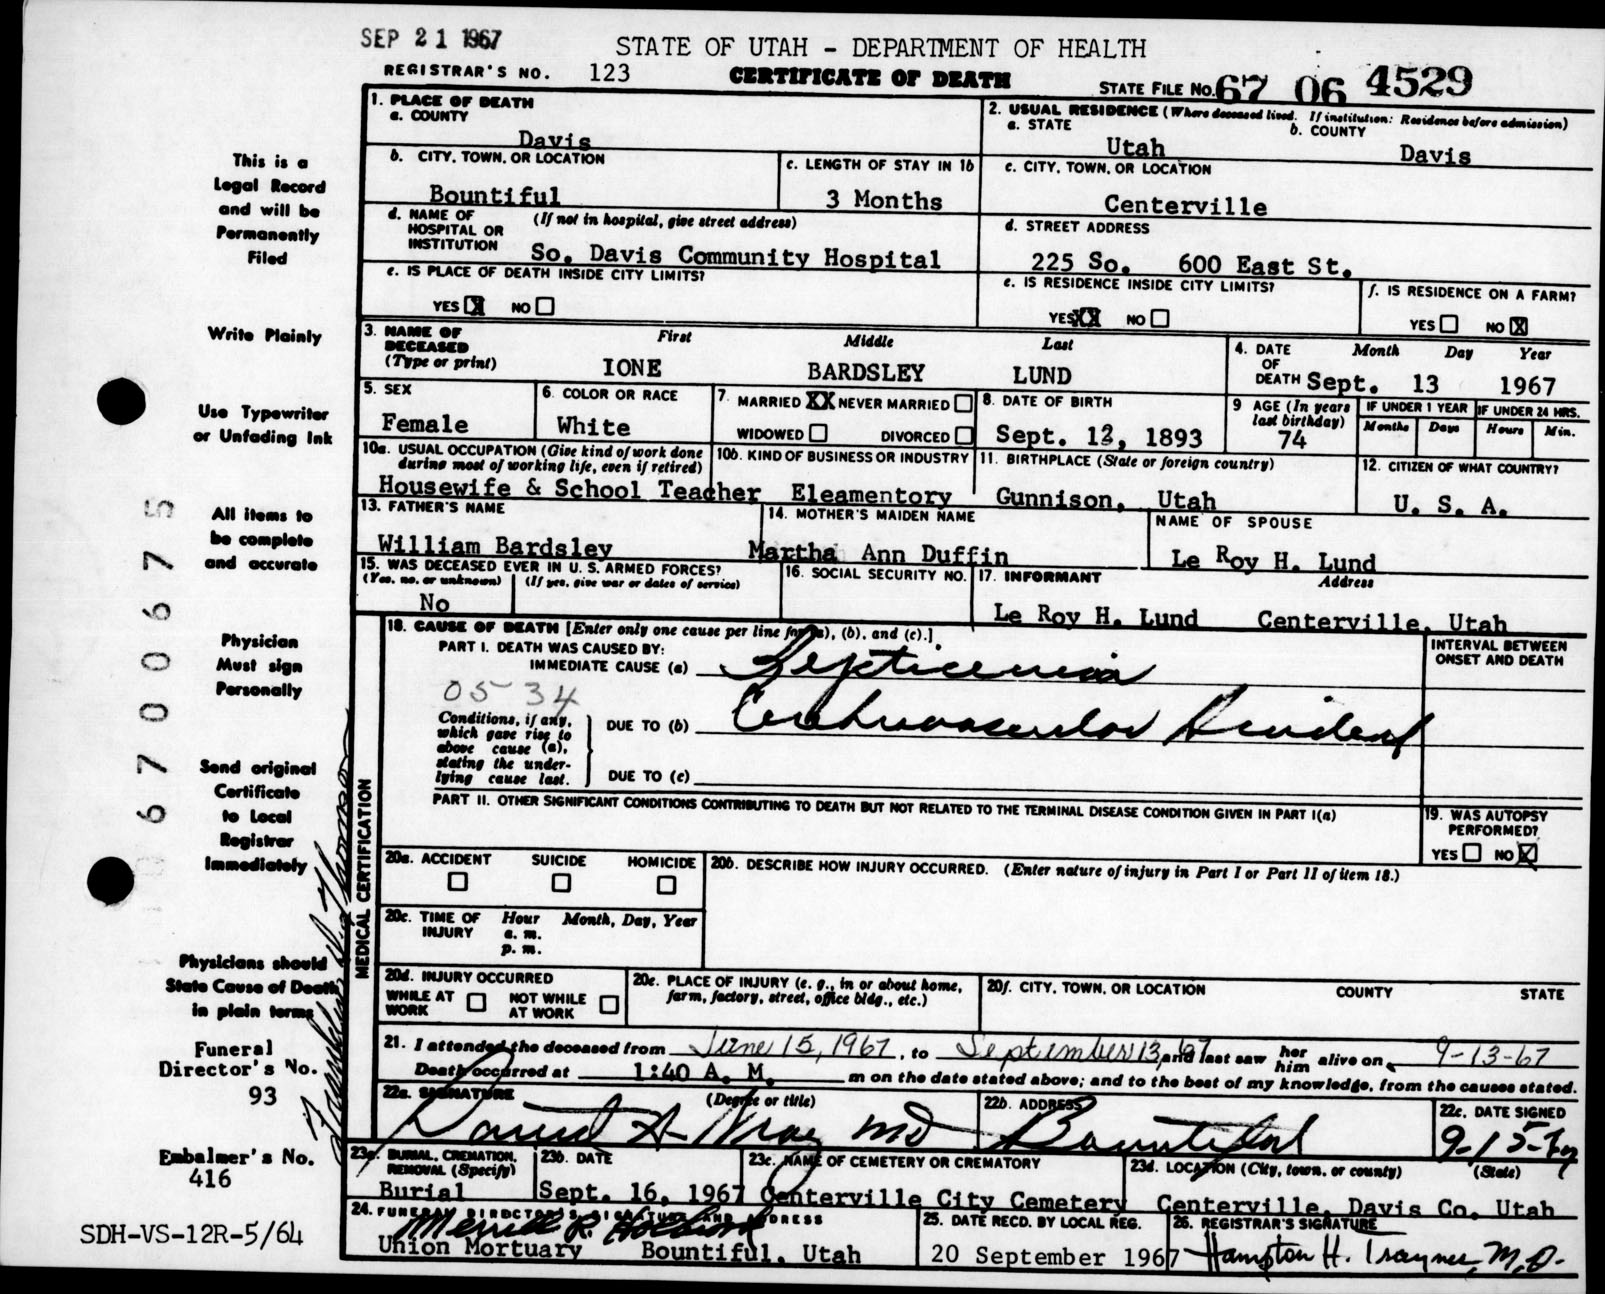 SEP 21 1967
STATE OF UTAH - DEPARTMENT OF HEALTH
REGISTRAR'S NO. 123
CERTIFICATE OF DEATH
STATE FILE NO. 67 06 4529
1. PLACE OF DEATH
a. COUNTY
Davis
2. USUAL RESIDENCE (Where deceased lived. If institution: Residence before admission)
a. STATE
Utah
b. COUNTY
Davis
b. CITY, TOWN, OR LOCATION
Bountiful
c. LENGTH OF STAY IN 1b
3 Months
c. CITY, TOWN, OR LOCATION
Centerville
d. NAME OF HOSPITAL OR INSTITUTION
(If not in hospital, give street address)
So. Davis Community Hospital
d. STREET ADDRESS
225 So. 600 East St.
e. IS PLACE OF DEATH INSIDE CITY LIMITS?
YES X NO
e. IS RESIDENCE INSIDE CITY LIMITS?
YES XX NO
f. IS RESIDENCE ON A FARM?
YES NO X
3. NAME OF DECEASED
(Type or print)
First Middle Last
IONE BARDSLEY LUND
4. DATE OF DEATH
Month Day Year
Sept. 13 1967
5. SEX
Female
6. COLOR OR RACE
White
7. MARRIED XX NEVER MARRIED
WIDOWED DIVORCED
8. DATE OF BIRTH
Sept. 12, 1893
9 AGE (In years last birthday)
74
IF UNDER 1 YEAR
Months Days
IF UNDER 24 HRS.
Hours Min.
10a. USUAL OCCUPATION (Give kind of work done during most of working life, even if retired)
Housewife & School Teacher
10b. KIND OF BUSINESS OR INDUSTRY
Eleamentory
11. BIRTHPLACE (State or foreign country)
Gunnison, Utah
12. CITIZEN OF WHAT COUNTRY?
U. S. A.
13. FATHER'S NAME
William Bardsley
14. MOTHER'S MAIDEN NAME
Martha Ann Duffin
NAME OF SPOUSE
Le Roy H. Lund
15. WAS DECEASED EVER IN U. S. ARMED FORCES?
(Yes, no, or unknown) (If yes, give war or dates of service)
No
16. SOCIAL SECURITY NO.
17. INFORMANT Address
Le Roy H. Lund Centerville, Utah
MEDICAL CERTIFICATION
18. CAUSE OF DEATH [Enter only one cause per line for (a), (b), and (c).]
INTERVAL BETWEEN ONSET AND DEATH
PART I. DEATH WAS CAUSED BY:
IMMEDIATE CAUSE (a) Septicemia
05 34
Conditions, if any, which gave rise to above cause (a), stating the underlying cause last.
DUE TO (b) Cerebrovascular Accident
DUE TO (c)
PART II. OTHER SIGNIFICANT CONDITIONS CONTRIBUTING TO DEATH BUT NOT RELATED TO THE TERMINAL DISEASE CONDITION GIVEN IN PART I(a)
19. WAS AUTOPSY PERFORMED?
YES NO X
20a. ACCIDENT SUICIDE HOMICIDE
20b. DESCRIBE HOW INJURY OCCURRED. (Enter nature of injury in Part I or Part II of item 18.)
20c. TIME OF INJURY
Hour Month, Day, Year
a. m.
p. m.
20d. INJURY OCCURRED
WHILE AT WORK NOT WHILE AT WORK
20e. PLACE OF INJURY (e. g., in or about home, farm, factory, street, office bldg., etc.)
20f. CITY, TOWN, OR LOCATION COUNTY STATE
21. I attended the deceased from June 15, 1967, to September 13, 67 and last saw her him alive on 9-13-67
Death occurred at 1:40 A. M. m on the date stated above; and to the best of my knowledge, from the causes stated.
22a. SIGNATURE (Degree or title)
MD
22b. ADDRESS
Bountiful
22c. DATE SIGNED
9-15-67
23a. BURIAL, CREMATION, REMOVAL (Specify)
Burial
23b. DATE
Sept. 16, 1967
23c. NAME OF CEMETERY OR CREMATORY
Centerville City Cemetery
23d. LOCATION (City, town, or county) (State)
Centerville, Davis Co. Utah
24. FUNERAL DIRECTOR'S SIGNATURE AND ADDRESS
Union Mortuary Bountiful, Utah
25. DATE RECD. BY LOCAL REG.
20 September 1967
26. REGISTRAR'S SIGNATURE
Hampton H. Trayner, M.D.
This is a
Legal Record
and will be
Permanently
Filed
Write Plainly
Use Typewriter
or Unfading Ink
All items to
be complete
and accurate
Physician
Must sign
Personally
Send original
Certificate
to Local
Registrar
Immediately
Physicians should
State Cause of Death
in plain terms
Funeral
Director's No.
93
Embalmer's No.
416
SDH-VS-12R-5/64
67 00675